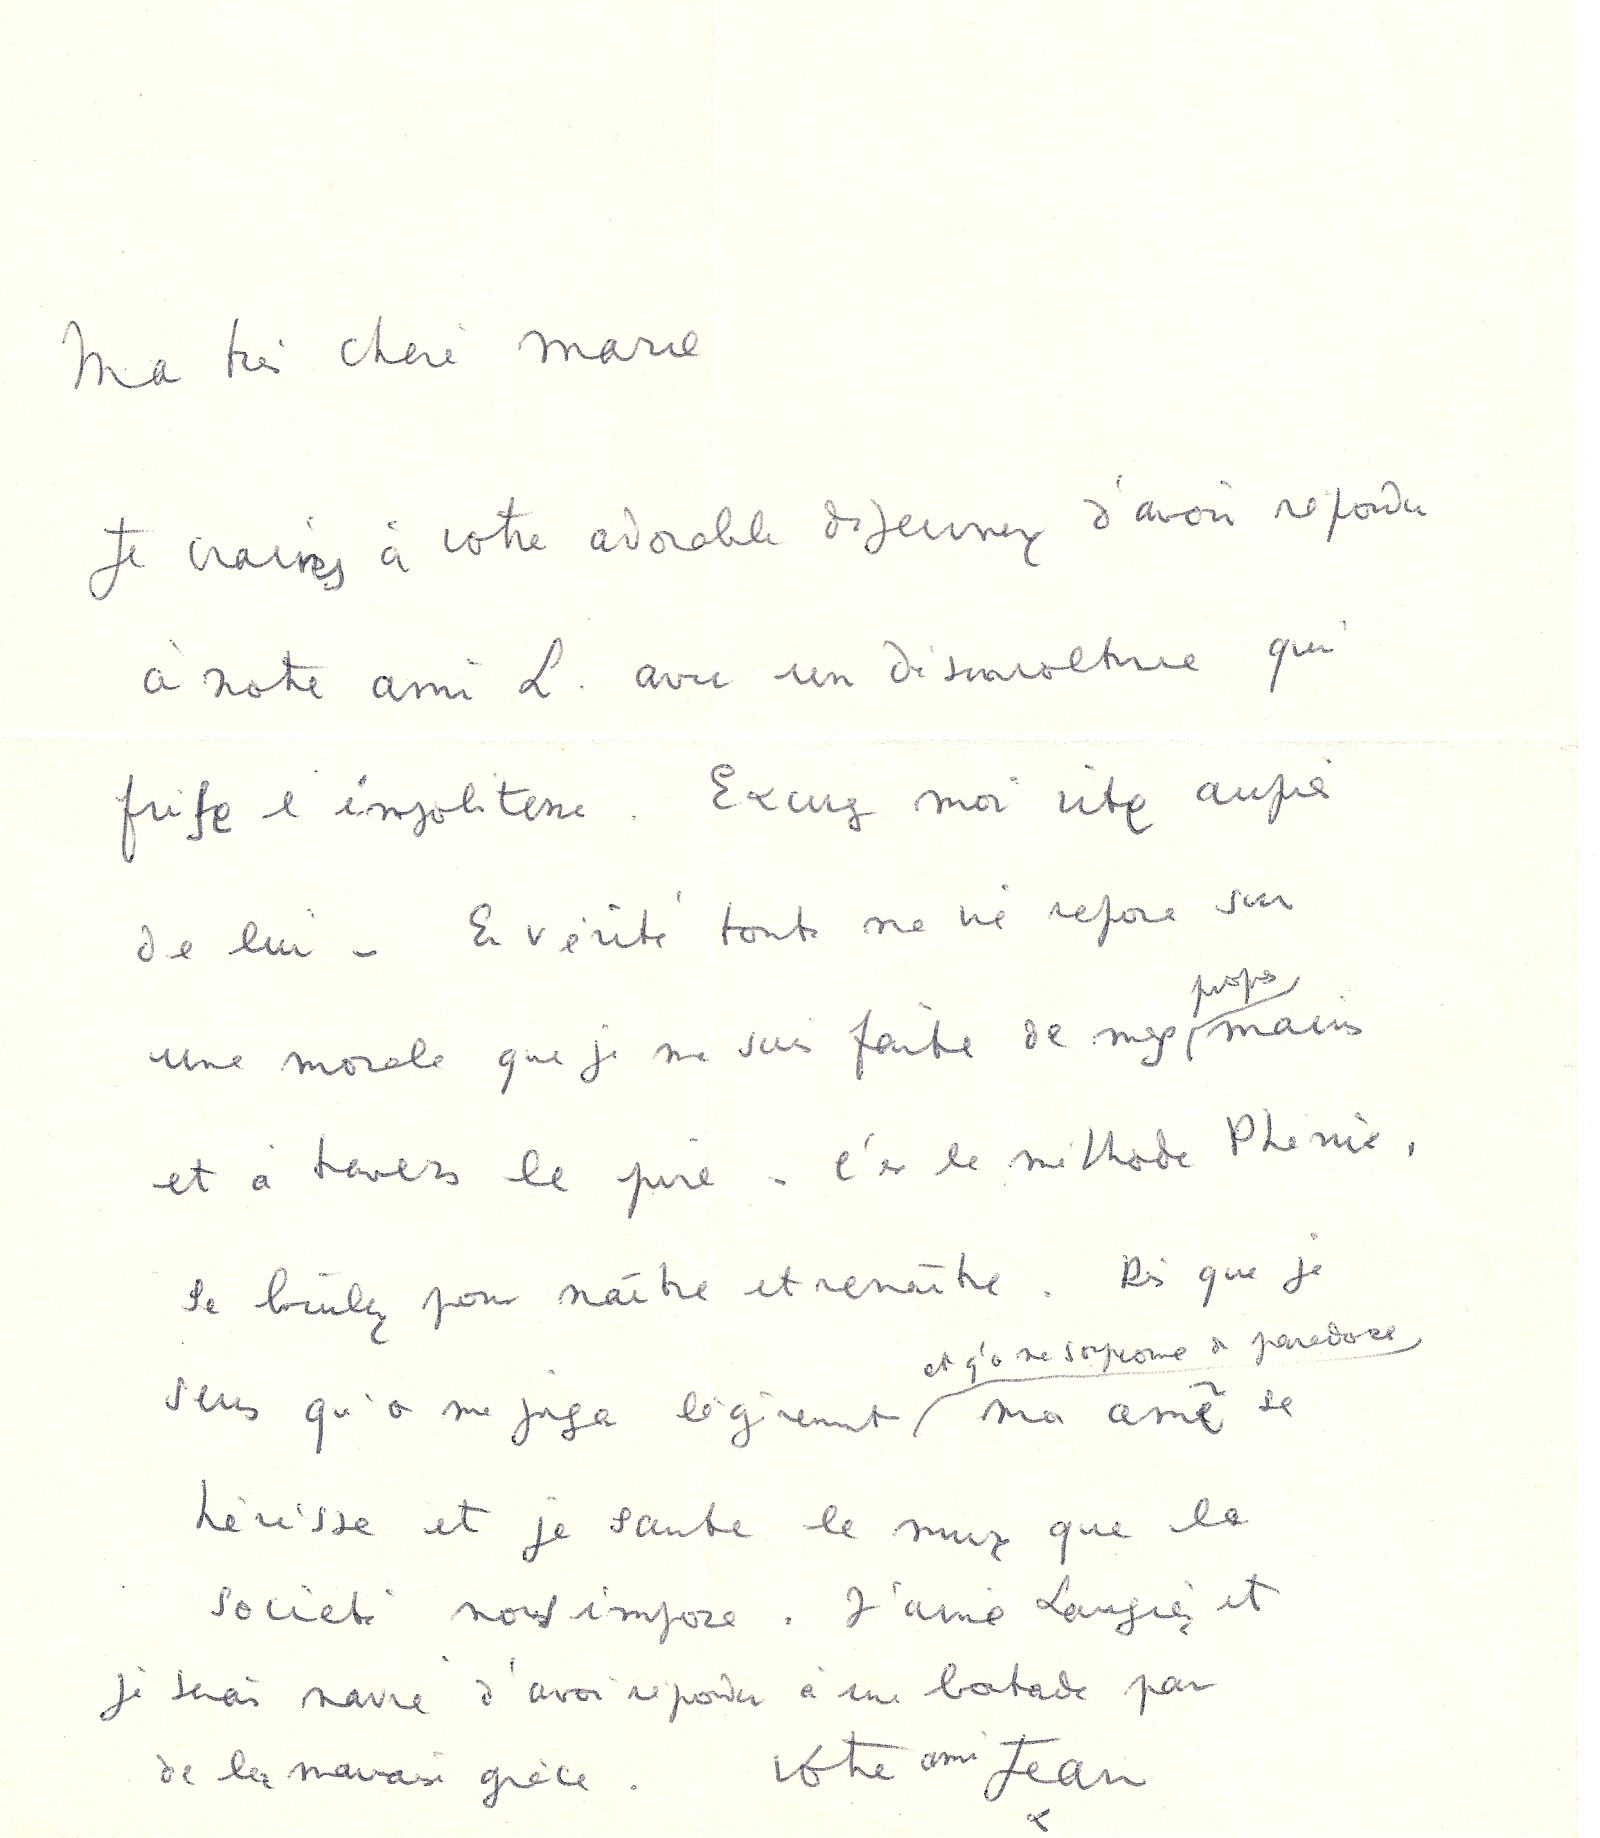 Ma très chère Marie
Je crains à votre adorable déjeuner d'avoir répondu
à notre ami L. avec une désinvolture qui
frise l'impolitesse. Excusez moi vite auprès
de lui - En vérité toute ma vie repose sur
propres
une morale que je me suis faite de mes mains
et à travers le pire - C'est la méthode Phénix,
se brûler pour naître et renaître. Dès que je
et qu'on me soupçonne de paradoxe
sens qu'on me juge légèrement ma âme se
hérisse et je saute le mur que la
société nous impose. J'aime Laugier et
je serais navré d'avoir répondu à une boutade par
de la mauvaise grâce. Votre ami Jean